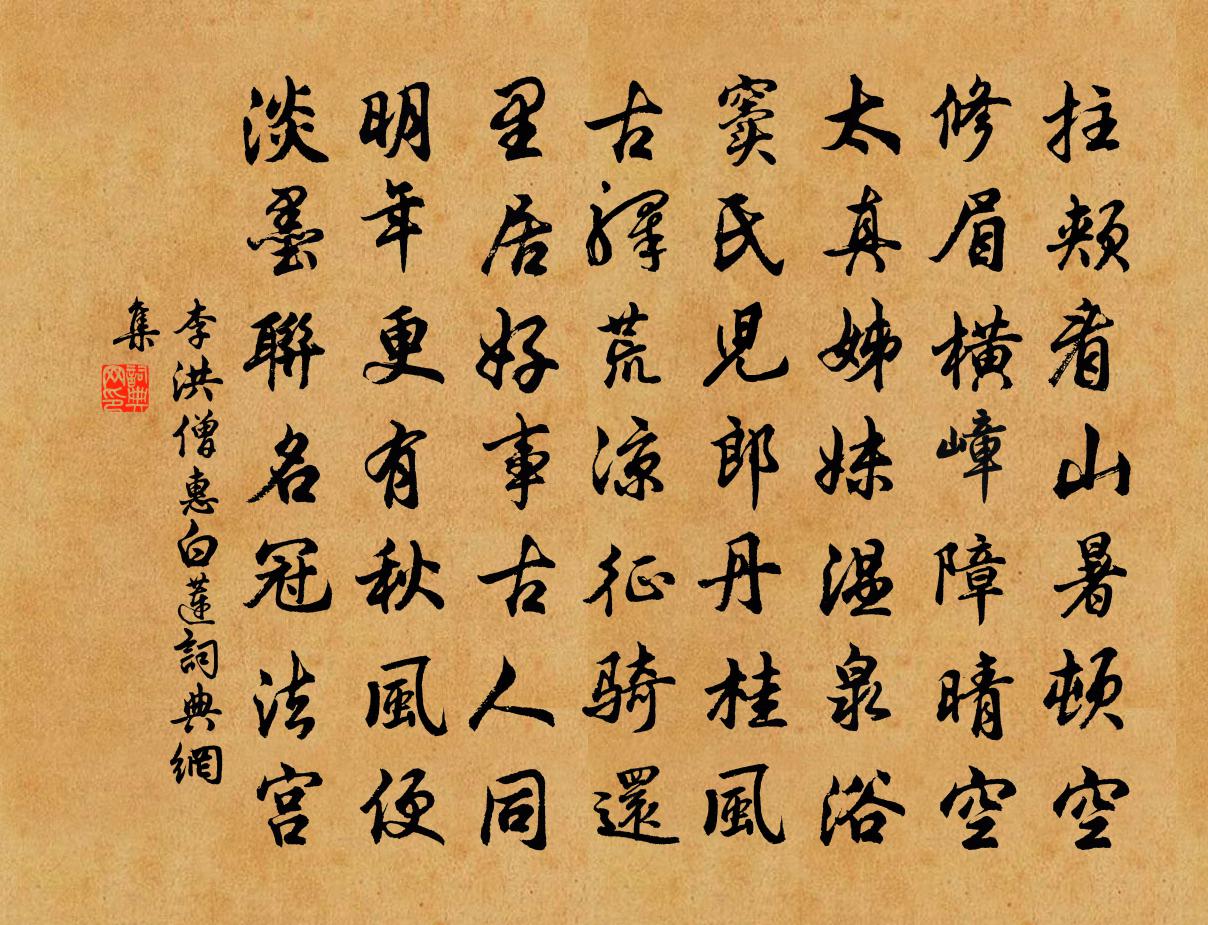 拄頰看山暑頓空
修眉橫嶂障晴空
太真姊妹溫泉浴
竇氏兒郎丹桂風
古驛荒涼征騎還
里居好事古人同
明年更有秋風便
淡墨聯名冠法宮
李洪僧惠白蓮詞典網
集
詞典網印